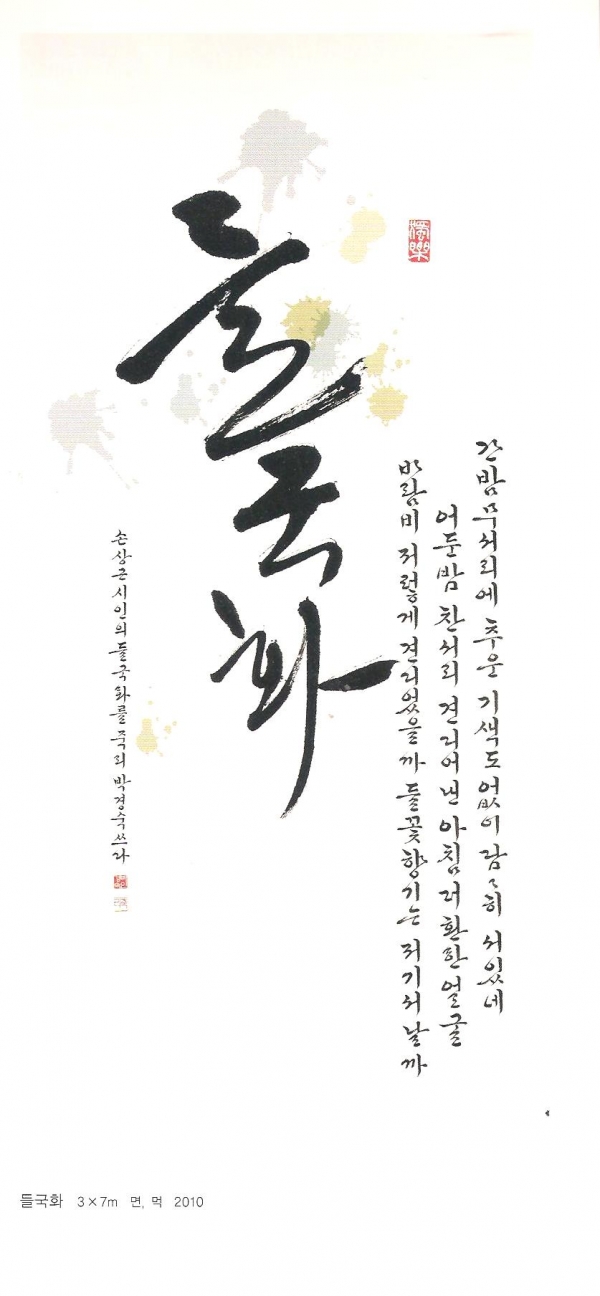 간밤 무서리에 추운 기색도 없이 담〻히 서있네
어둔밤 찬서리 견디어낸 아침 더 환한 얼굴
바람비 저렇게 견디었을까 들꽃향기는 저기서 날까
들국화
손상근 시인의 들국화를 죽리 박경숙 쓰다
들국화 3×7m 면, 먹 2010